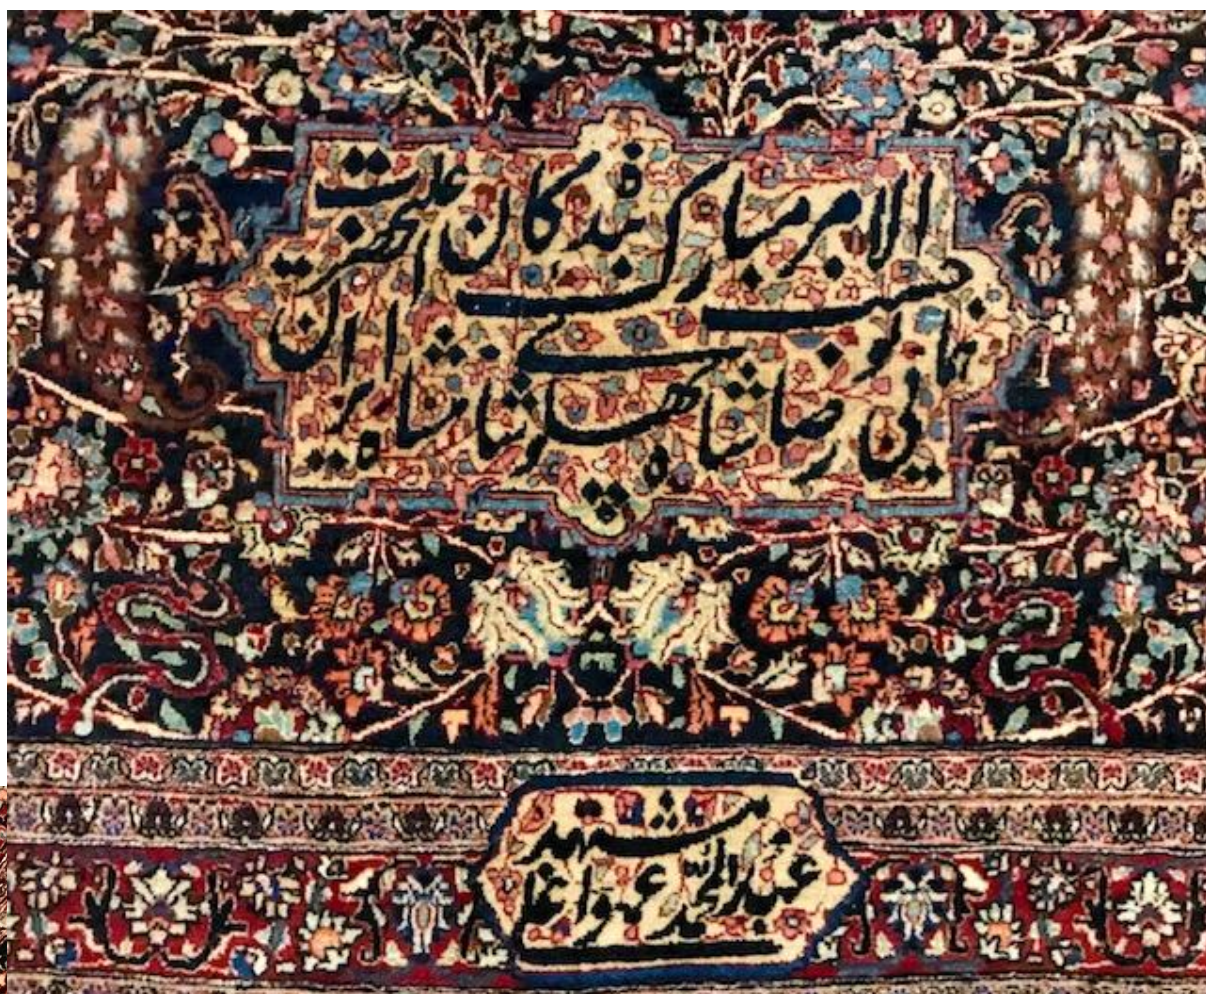 حسب الامر مبارک بندگان اعلیحضرت
همایونی رضا شاه پهلوی شاهنشاه ایران
مشهد
عمواغلی